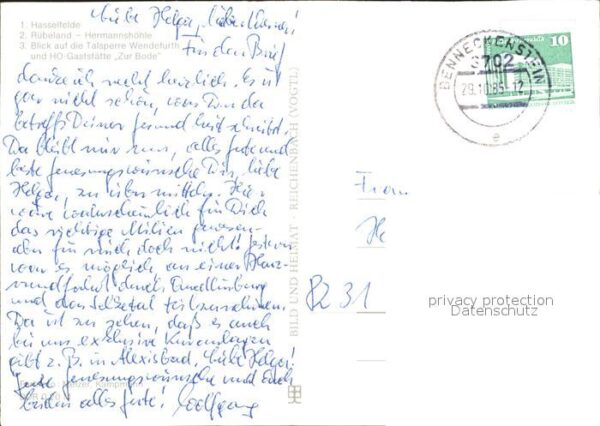 1. Hasselfelde
2. Rübeland — Hermannshöhle
3. Blick auf die Talsperre Wendefurth
und HO-Gaststätte „Zur Bode"
Liebe Helga, lieber
Für den Brief
danke ich recht herzlich. Es ist
gar nicht schön, was Du da
betreffs Deiner Gesundheit schreibst.
Da bleibt mir nur, alles Gute und
beste Genesungswünsche Dir, liebe
Helga, zu übermitteln. Hier
wäre wahrscheinlich für Dich
das richtige Milieu gewesen
aber für mich doch nicht! Gestern
war es möglich an einer Harz-
rundfahrt durch Quedlinburg
und das Selketal teilzunehmen.
Da ist zu sehen, daß es auch
bei uns exclusive Kuranlagen
gibt z. B. in Alexisbad. Liebe Helga!
Gute Genesungswünsche und Euch
beiden alles Gute! Wolfgang
BILD UND HEIMAT REICHENBACH (VOGTL)
BENNECKENSTEIN
3702
29.10.85-12
e
10
Frau
He
82 31
privacy protection
Datenschutz